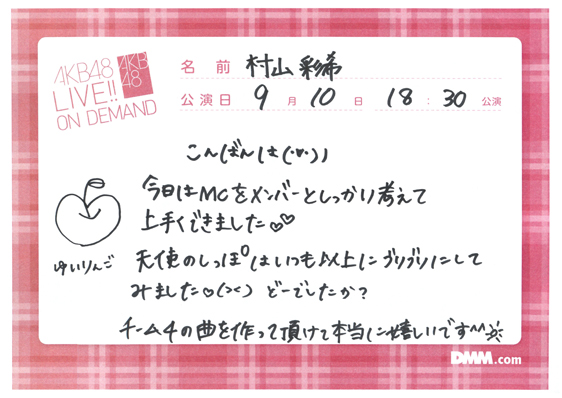 AKB48
LIVE!!
ON DEMAND
AKB
48
名前 村山彩希
公演日 9月10日 18:30公演
こんばんは(・♥・))
今日はMCをメンバーとしっかり考えて
上手くできました♡♡
ゆいりんご
天使のしっぽはいつも以上にブリブリにして
みました♡(><) どーでしたか?
チーム4の曲を作って頂けて本当に嬉しいです^^
DMM.com